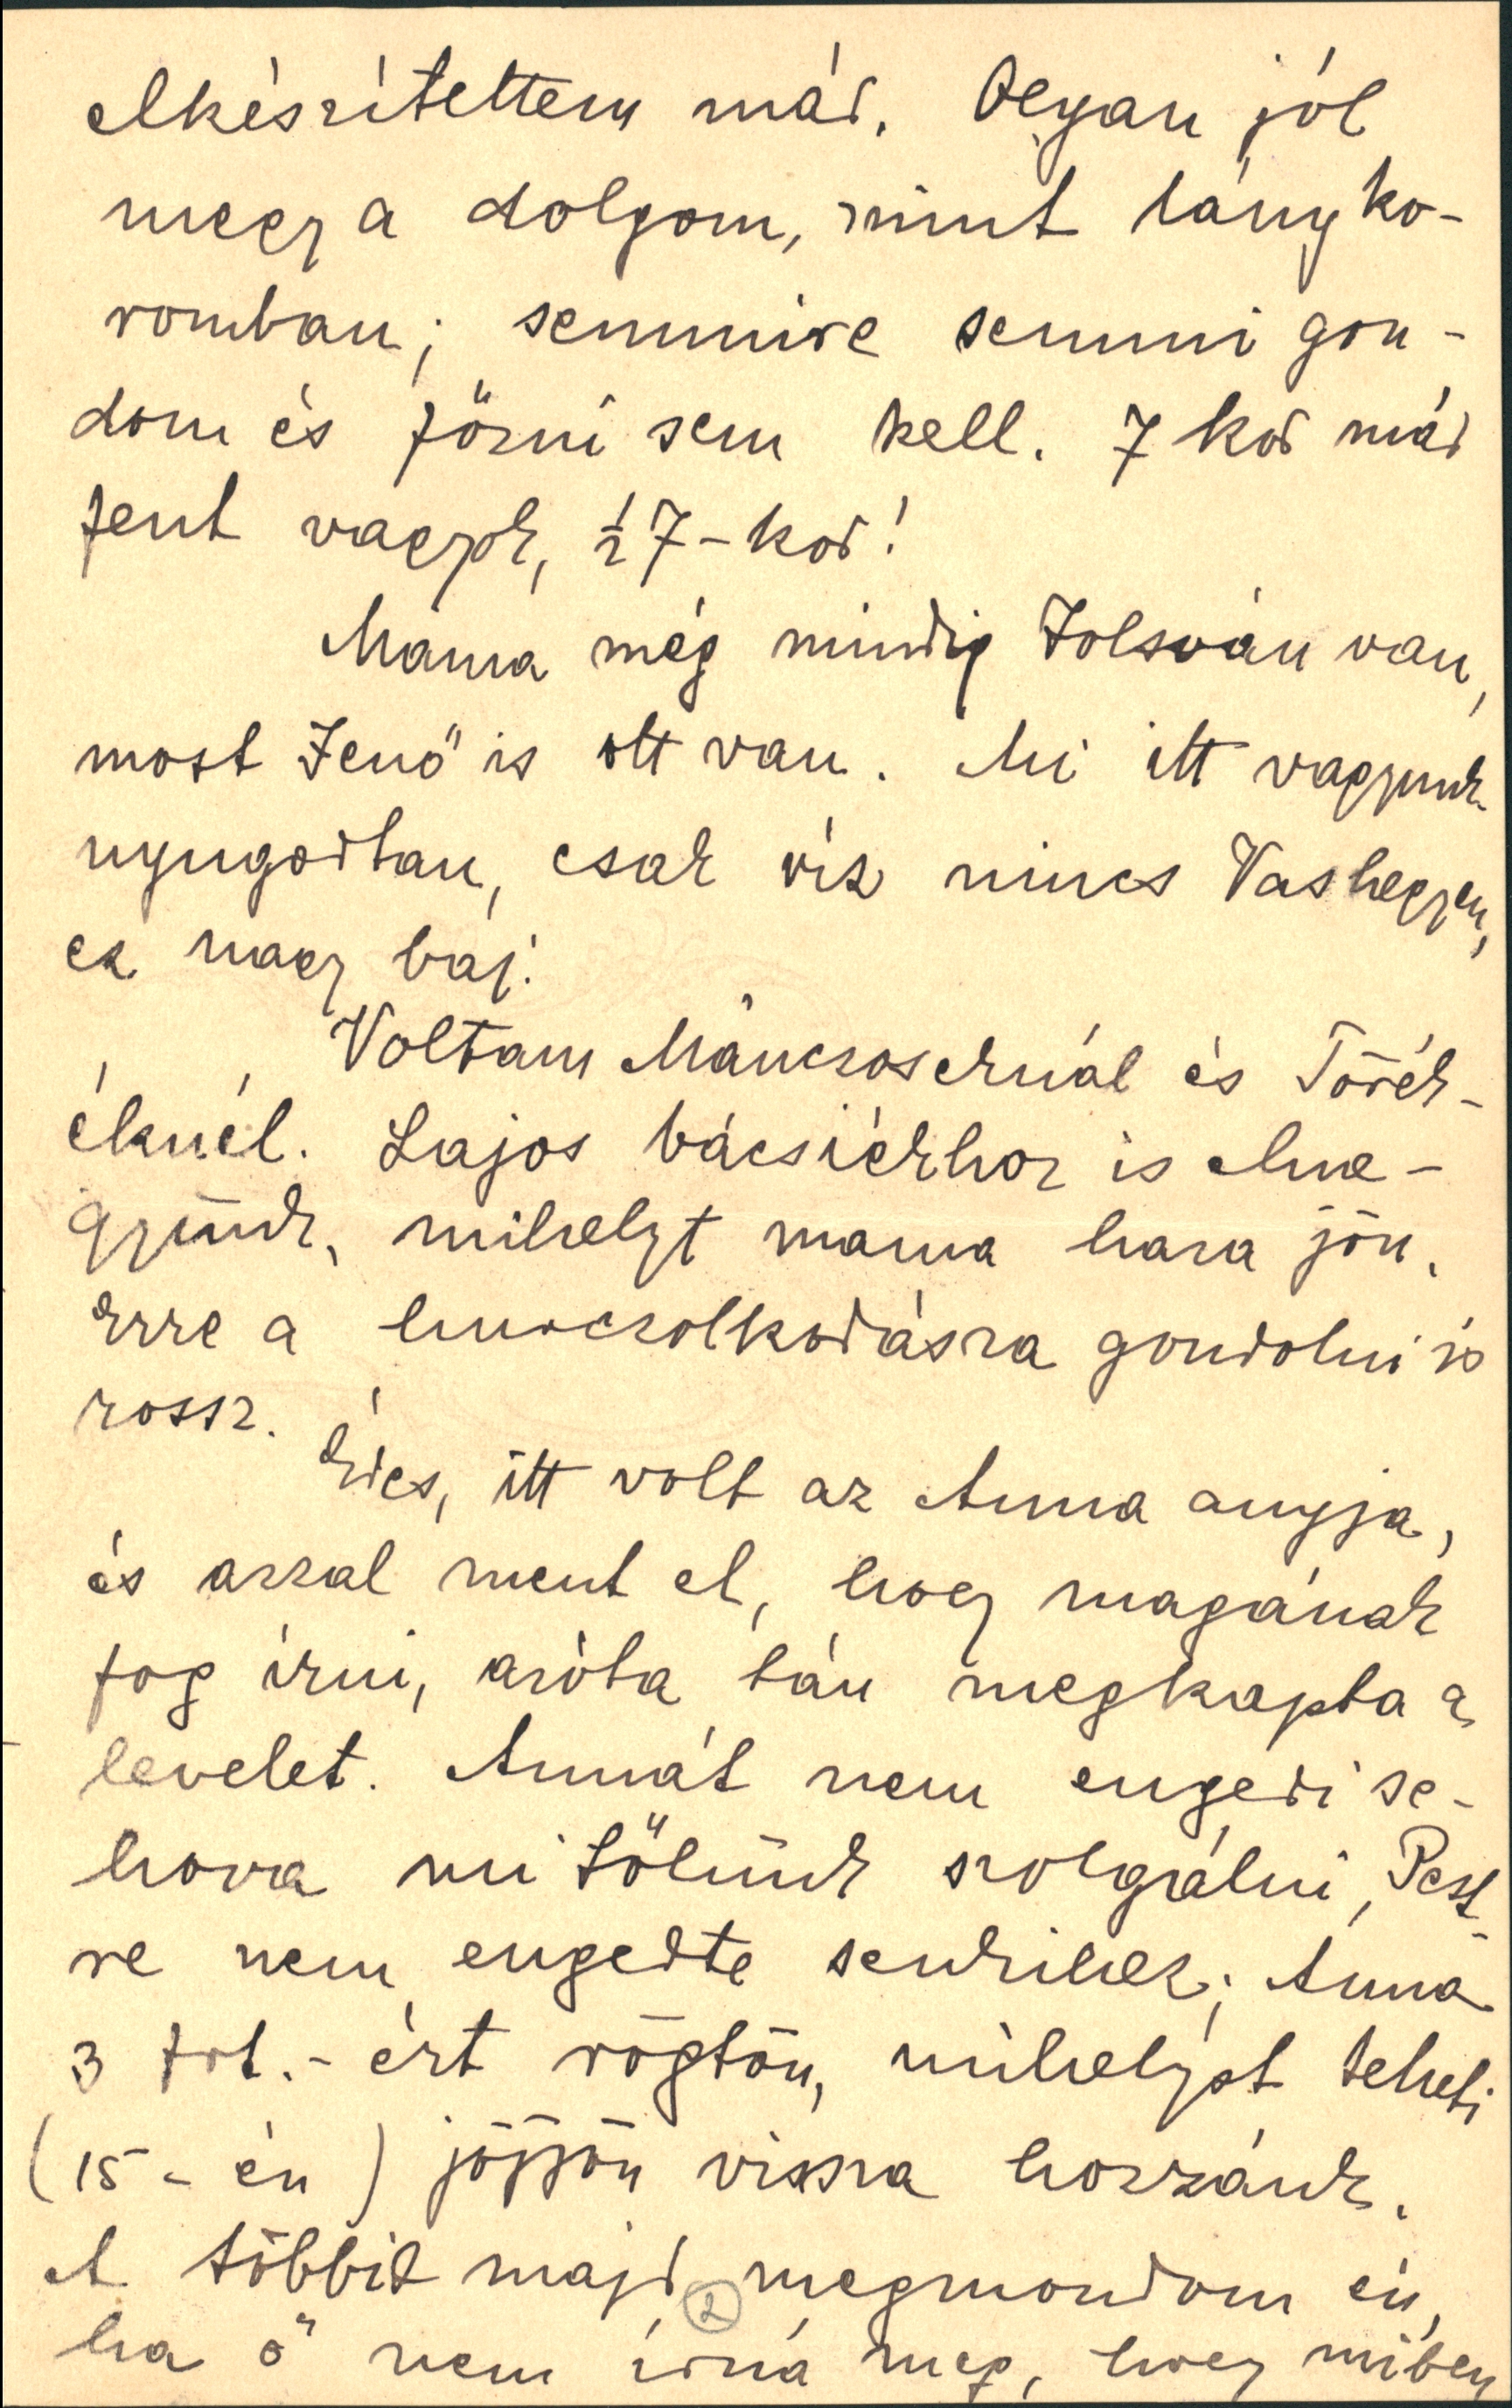 elkészítettem már. Olyan jól
megy a dolgom, mint lányko-
romban; semmire semmi gon-
dom és főzni sem kell. 7 kor már
fent vagyok, ½7-kor!
Mama még mindig Jolsván van,
most Jenő is ott van. Mi itt vagyunk
nyugodtan, csak víz nincs Vashegyen,
ez nagy baj.
Voltam Máncsoséknál és Törék-
éknél. Lajos bácsiékhoz is elme-
gyünk, mihelyt mama haza jön.
Erre a hurczolkodásra gondolni is
rossz.
Édes, itt volt az Anna anyja,
és azzal ment el, hogy magának
fog írni, azóta tán megkapta a
levelet. Annát nem engedi se-
hova mi tőlünk szolgálni, Pest-
re nem engedte senkihez; Anna
3 frt.-ért rögtön, mihelyst teheti
(15-én) jöjjön vissza hozzánk.
A többit majd megmondom én,
2
ha ő nem írná meg, hogy miben